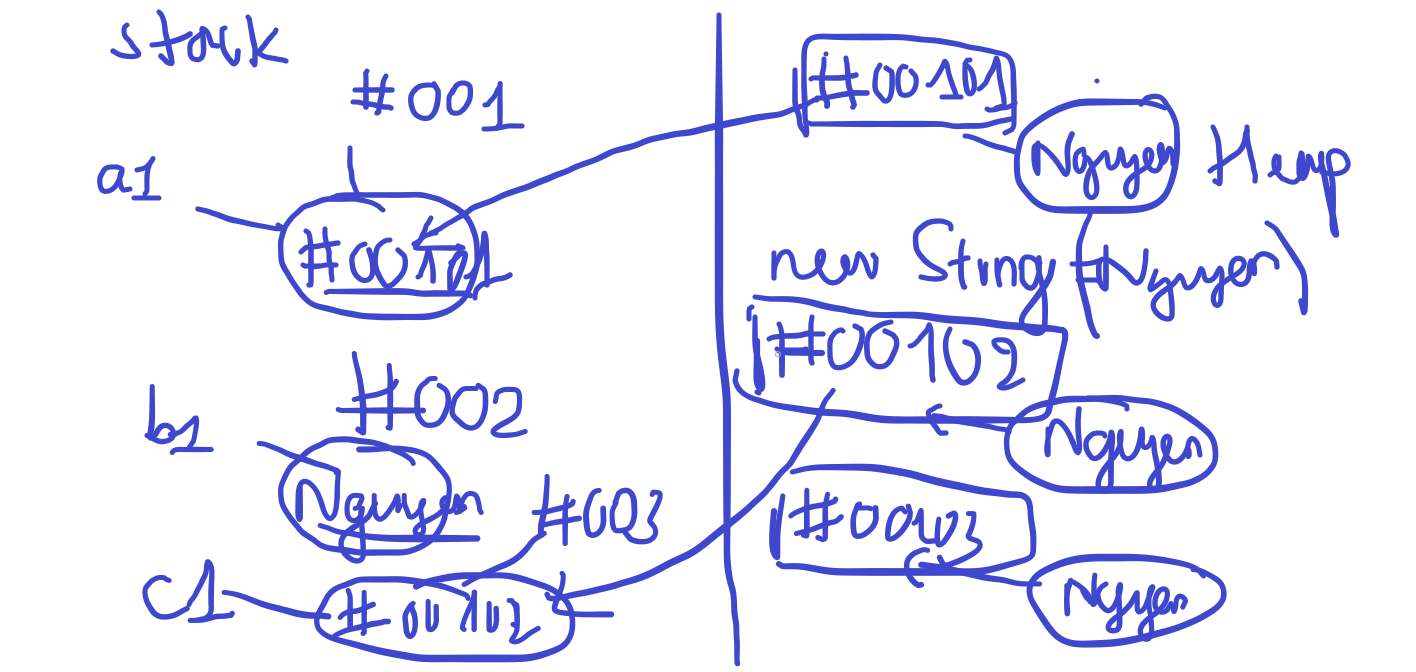 stack
#001
a1
#00101
b1
#002
Nguyen
#003
c1
#00102
#00101
Nguyen
Heap
new String (Nguyen)
#00102
Nguyen
#00103
Nguyen